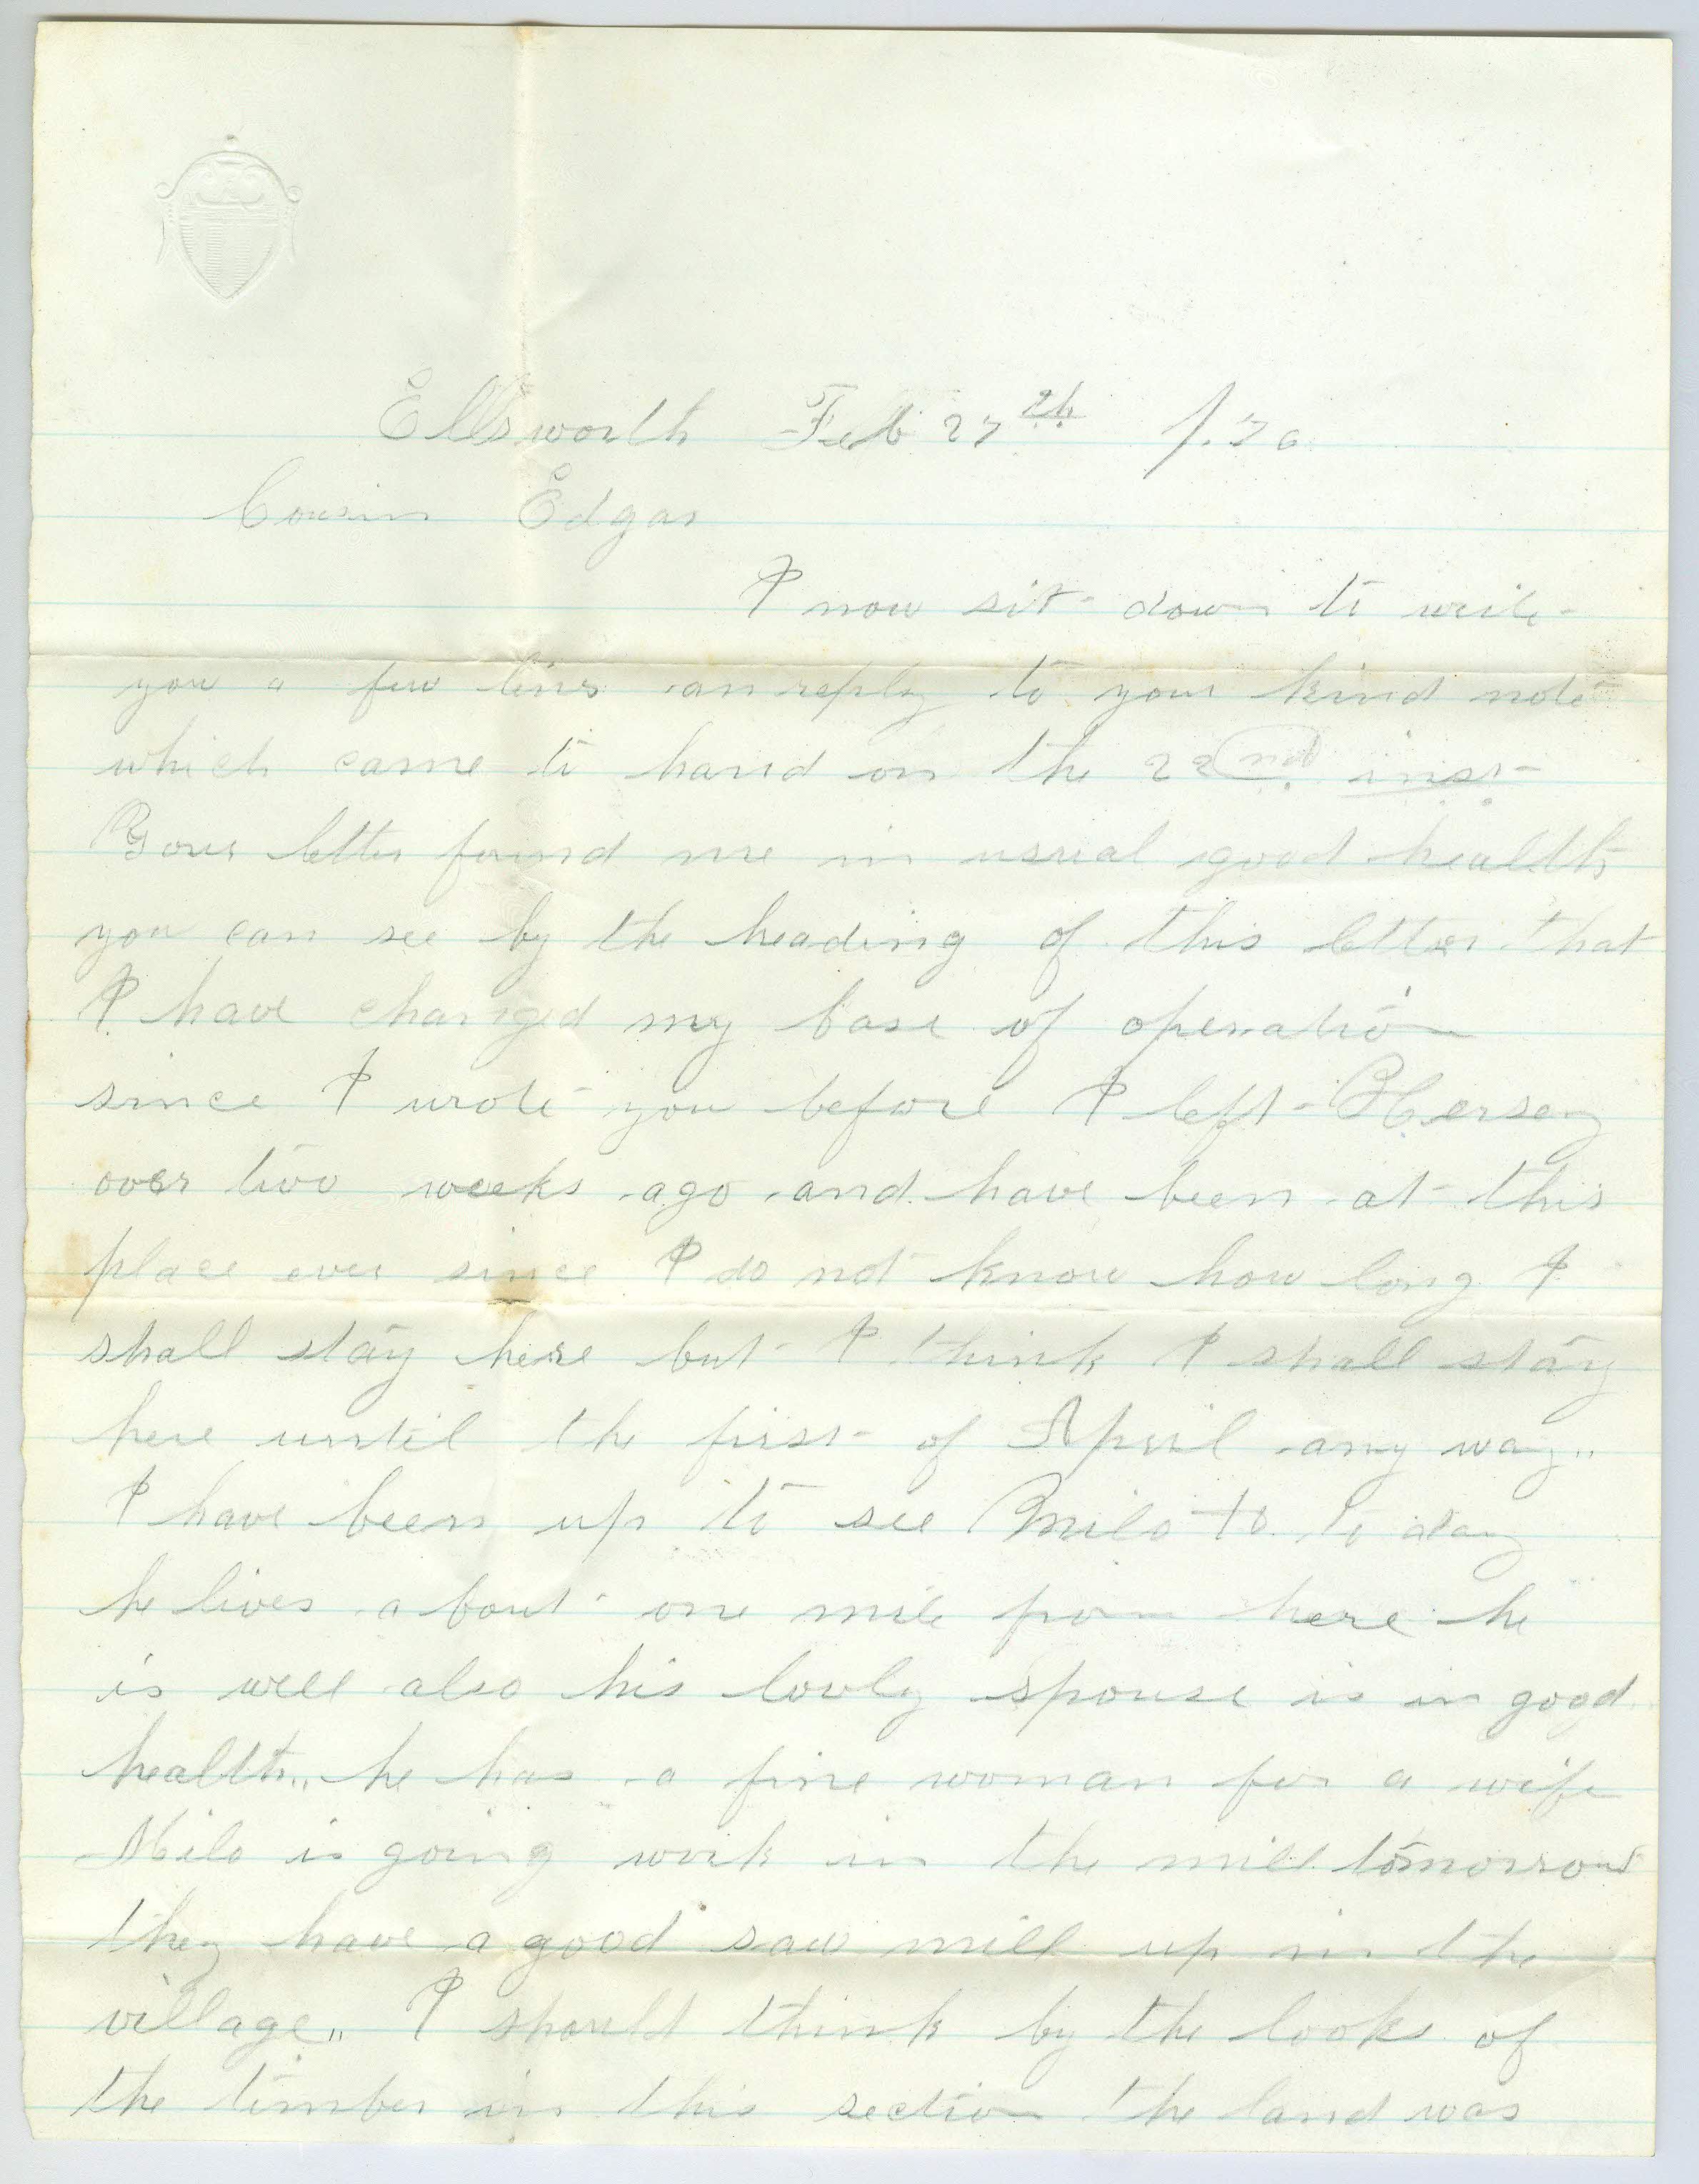 Ellsworth Feb 27th
Cousin Edgar
I now sit down to write
you a few lines an reply to your kind note
which came to hand on the 22nd inst
Your letter found me in usual good health
you can see by the heading of this letter that
I have changed my base of operation
since I wrote you before I left Hersey
over two weeks ago and have been at this
place ever since I do not know how long I
shall stay here but I think I shall stay
here until the first of April any way..
I have been up to see Milo to day
he lives about one mile from here he
is well also his lovly spouse is in good
health.. he has a fine woman for a wife
Milo is going work in the mill tomorrow
they have a good saw mill up in the
village.. I should think by the looks of
the timber in this section the land was